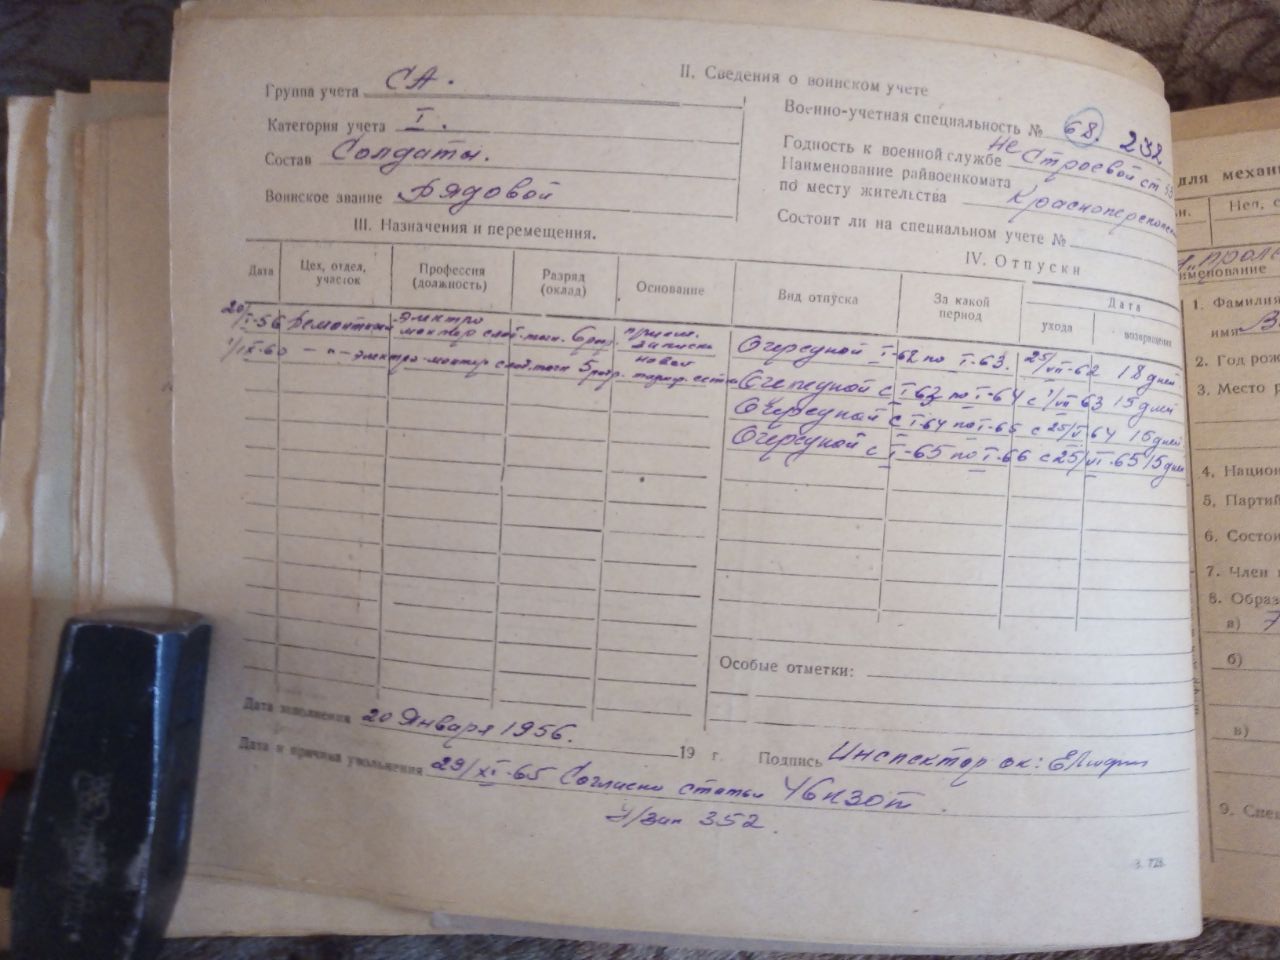 II. Сведения о воинском учете
Группа учета СА.
Категория учета I.
Состав Солдаты.
Воинское звание Рядовой
Военно-учетная специальность № 68. 232
Годность к военной службе не строевой ст
Наименование райвоенкомата
по месту жительства
Состоит ли на специальном учете №
III. Назначения и перемещения.
Дата Цех, отдел, участок Профессия (должность) Разряд (оклад) Основание
20/I-56 Ремонтный электро
1/IX-60 -"- электро-монтер 5 разр. новой
IV. Отпуски
Вид отпуска За какой период Дата
ухода возвращения
Очередной I-62 по I-63. 25/VII-62 18 дней
Очередной с I-63 по I-64 с 1/VII 63 15 дней
Очередной с I-64 по I-65 с 25/V-64 15 дней
Очередной с I-65 по I-66 с 25/VI-65 15 дней
Особые отметки:
Дата заполнения 20 Января 1956. 19 г. Подпись Инспектор ок:
Дата и причина увольнения 29/XI-65 Согласно статьи
352.
З. 728.
для механи
Нел, с
именование
1. Фамилия
имя В
2. Год рож
3. Место р
4. Национ
5. Партий
6. Состои
7. Член
8. Образ
а) 7
б)
в)
9. Спец